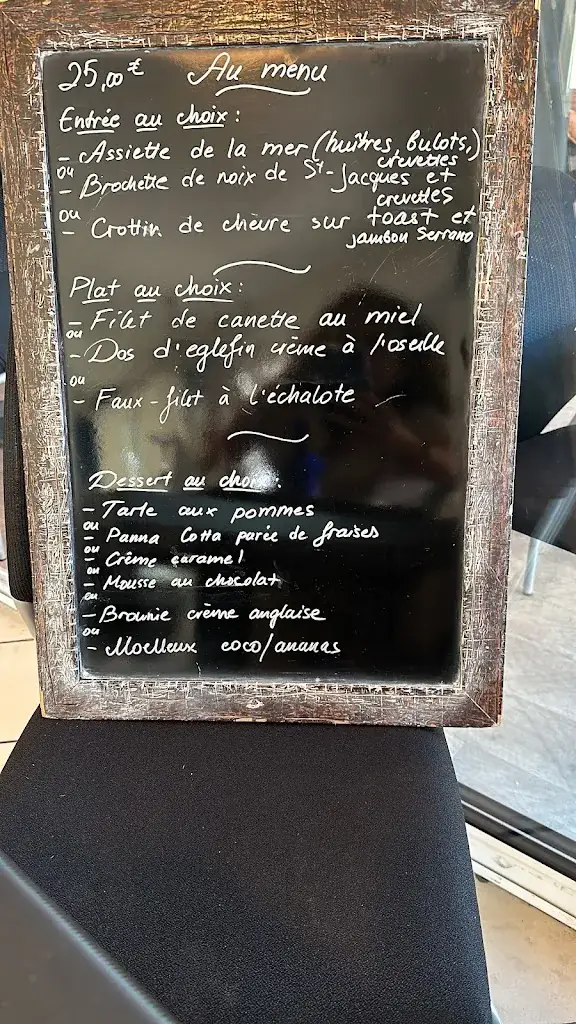 25,00 € Au menu
Entrée au choix :
- Assiette de la mer (huîtres, bulots,)
crevettes
ou
- Brochette de noix de St-Jacques et
crevettes
ou
- Crottin de chèvre sur toast et
jambon Serrano
Plat au choix :
- Filet de canette au miel
ou
- Dos d'eglefin crème à l'oseille
ou
- Faux-filet à l'échalote
Dessert au choix :
- Tarte aux pommes
ou
- Panna Cotta parée de fraises
ou
- Crème caramel
ou
- Mousse au chocolat
ou
- Brownie crème anglaise
ou
- Moelleux coco/ananas